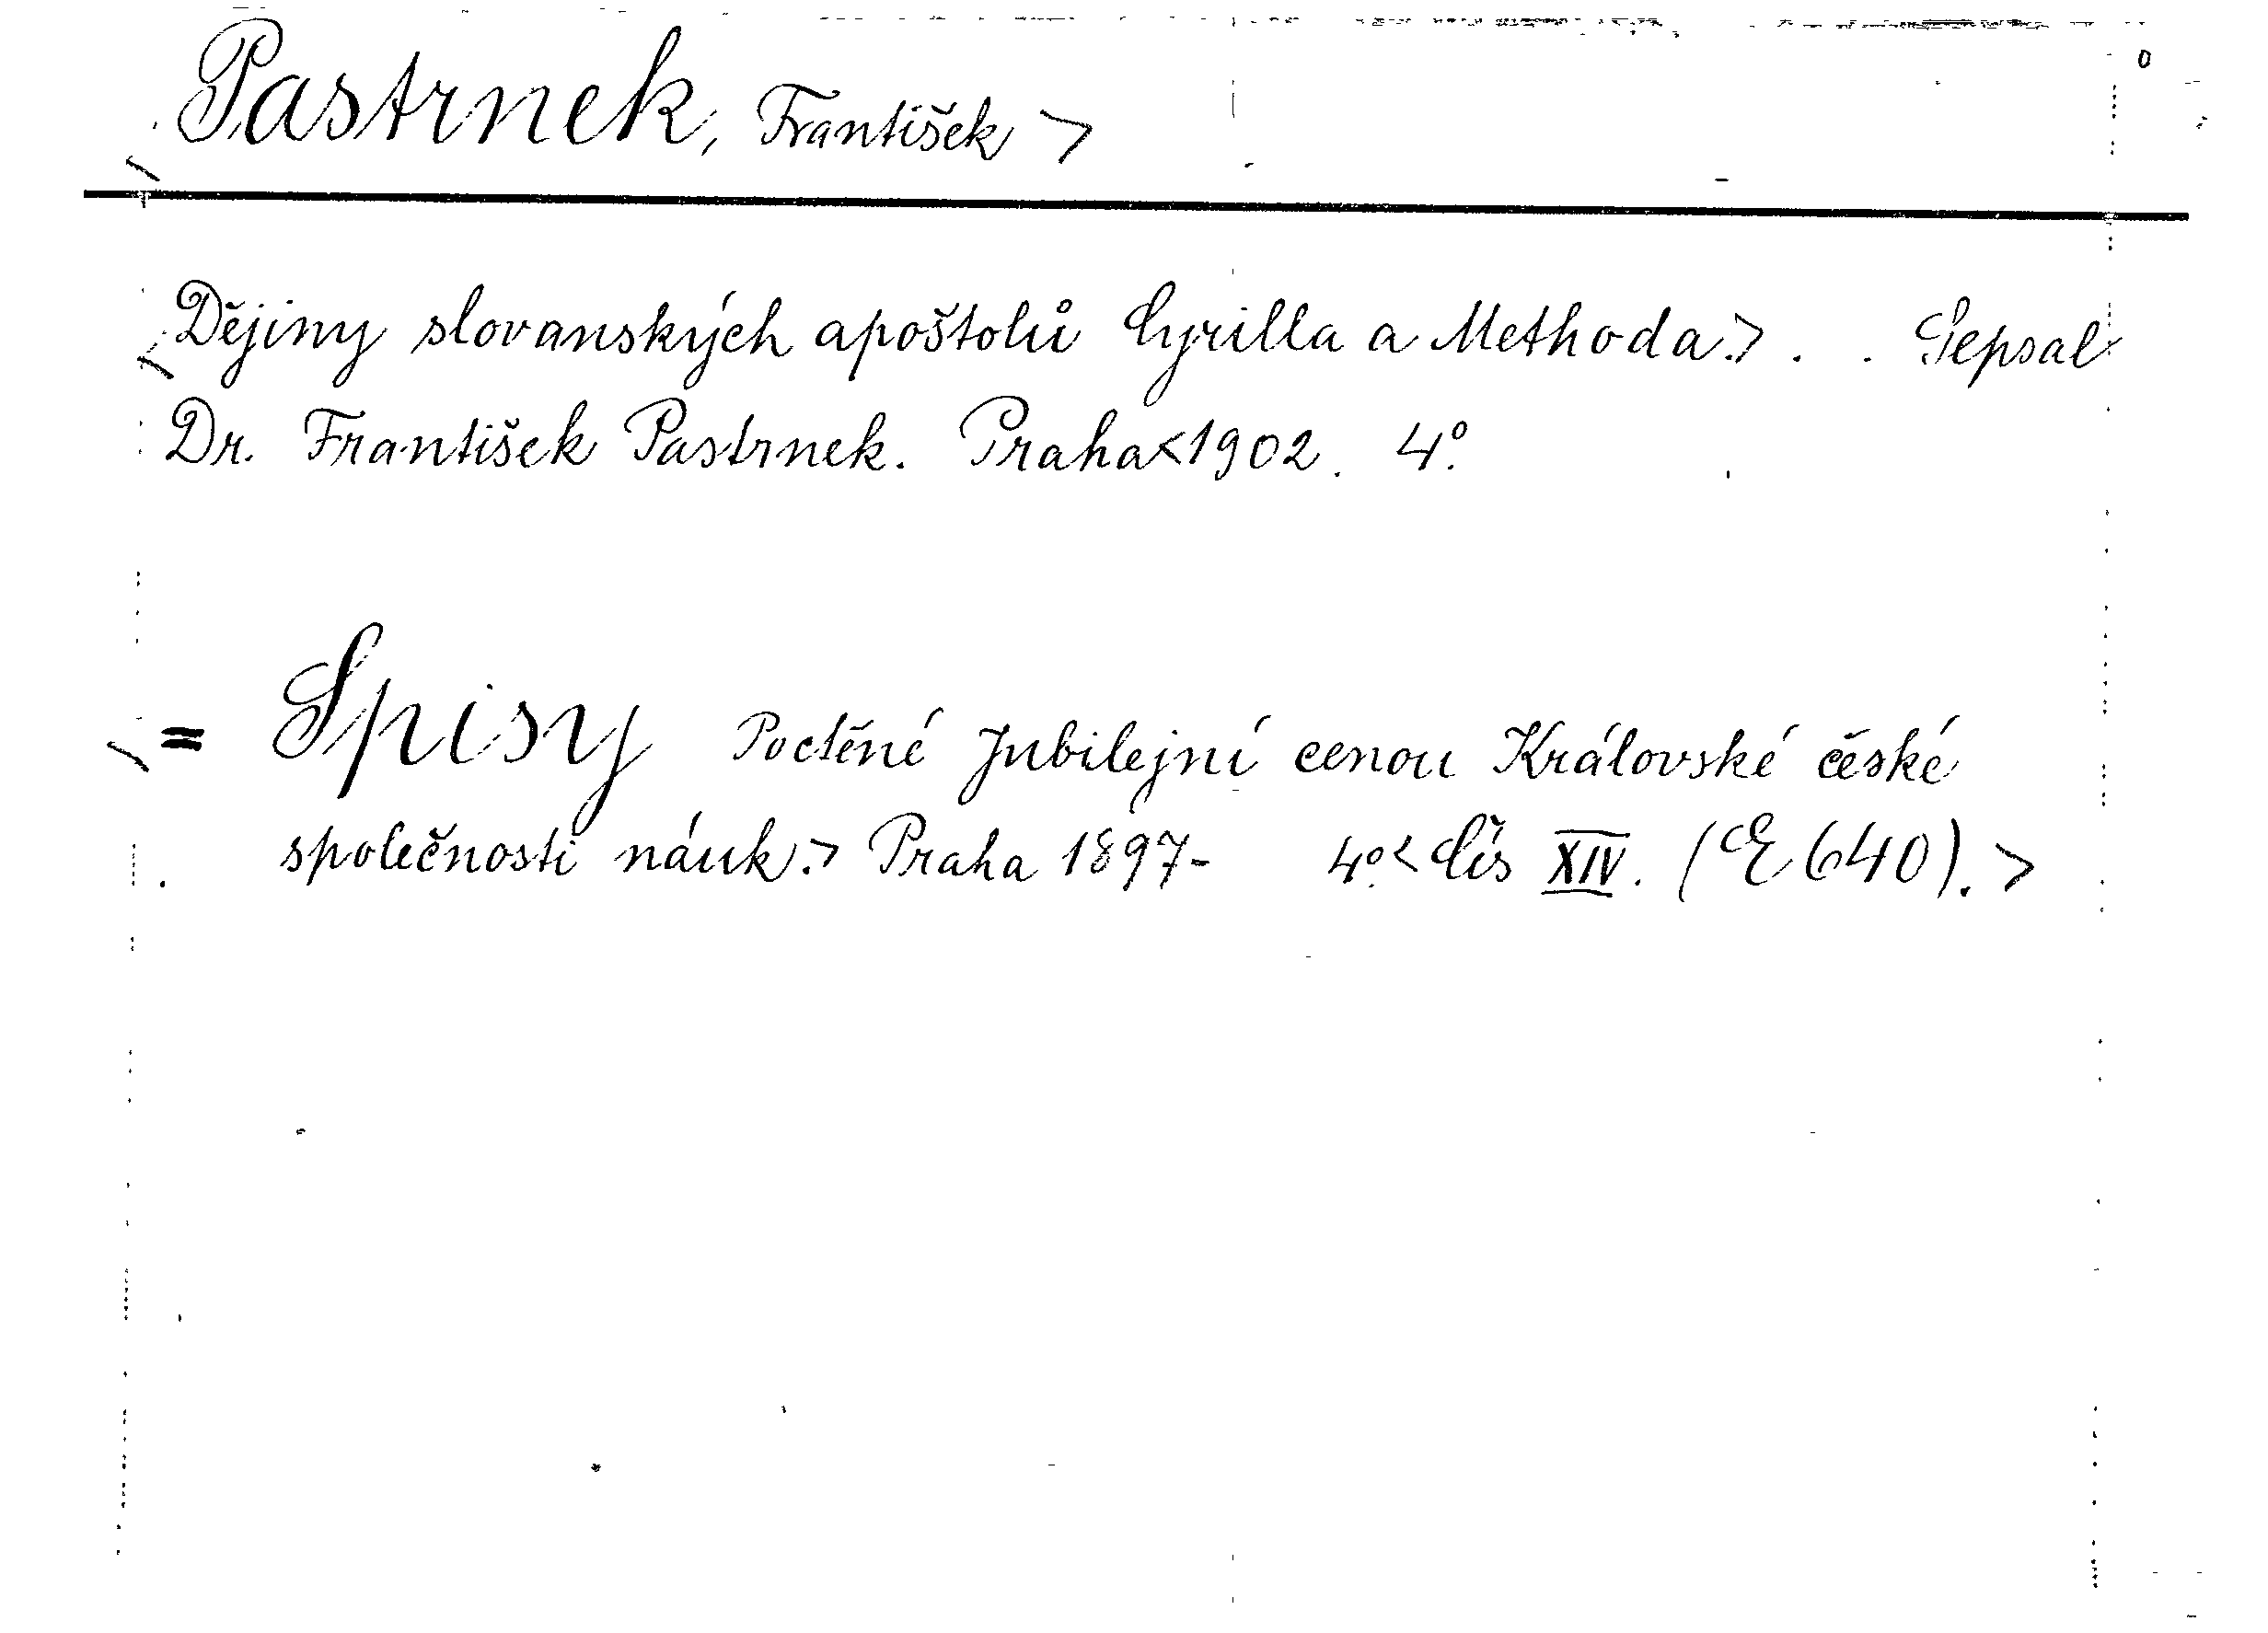 Pastrnek, František >
Dějiny slovanských apoštolů Cyrilla a Methoda.> . . Sepsal
Dr. František Pastrnek. Praha<1902. 4°.
= Spisy Poctěné Jubilejní cenou Královské české
společnosti náuk.> Praha 1897- 4°.< Čís XIV. (E 640). >